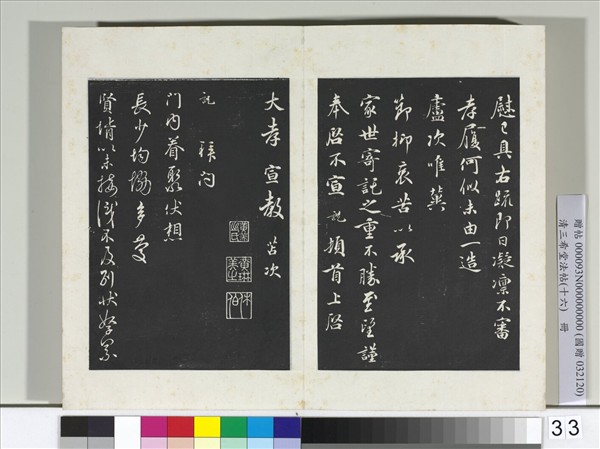 慰已具右疏即日凝凜不審
孝履何似未由一造
廬次唯冀
節抑哀苦以承
家世寄託之重不勝至望謹
奉啓不宣 頓首上啓
大孝宣教 苫次
門內眷聚伏想
長少均協多慶
賢壻以未接識不及別狀
贈帖 000093N000000000 (國贈 032120)
清三希堂法帖(十六) 冊
33